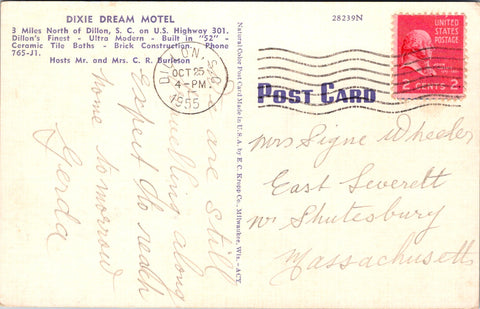 DIXIE DREAM MOTEL
3 Miles North of Dillon, S. C. on U.S. Highway 301.
Dillon's Finest - Ultra Modern - Built in "52" -
Ceramic Tile Baths - Brick Construction. Phone
765-J1.
Hosts Mr. and Mrs. C. R. Burleson
DILLON, S.C.
OCT 25
4 - PM
1955
28239N
UNITED STATES
POSTAGE
2 CENTS 2
POST CARD
Natural Color Post Card Made in U.S.A. by E. C. Kropp Co., Milwaukee, Wis. - ACY.
We are still
traveling along
expect to reach
home tomorrow
Gerda
Mrs Signe Wheeler
East Leverett
Shutesbury
Massachusetts